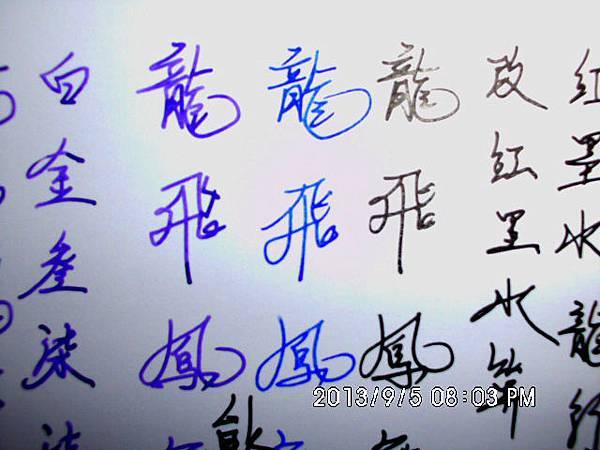 紅墨水龍
改紅墨水筆
龍飛鳳
龍飛鳳
龍飛鳳
白金產染
2013/9/5 08:03 PM